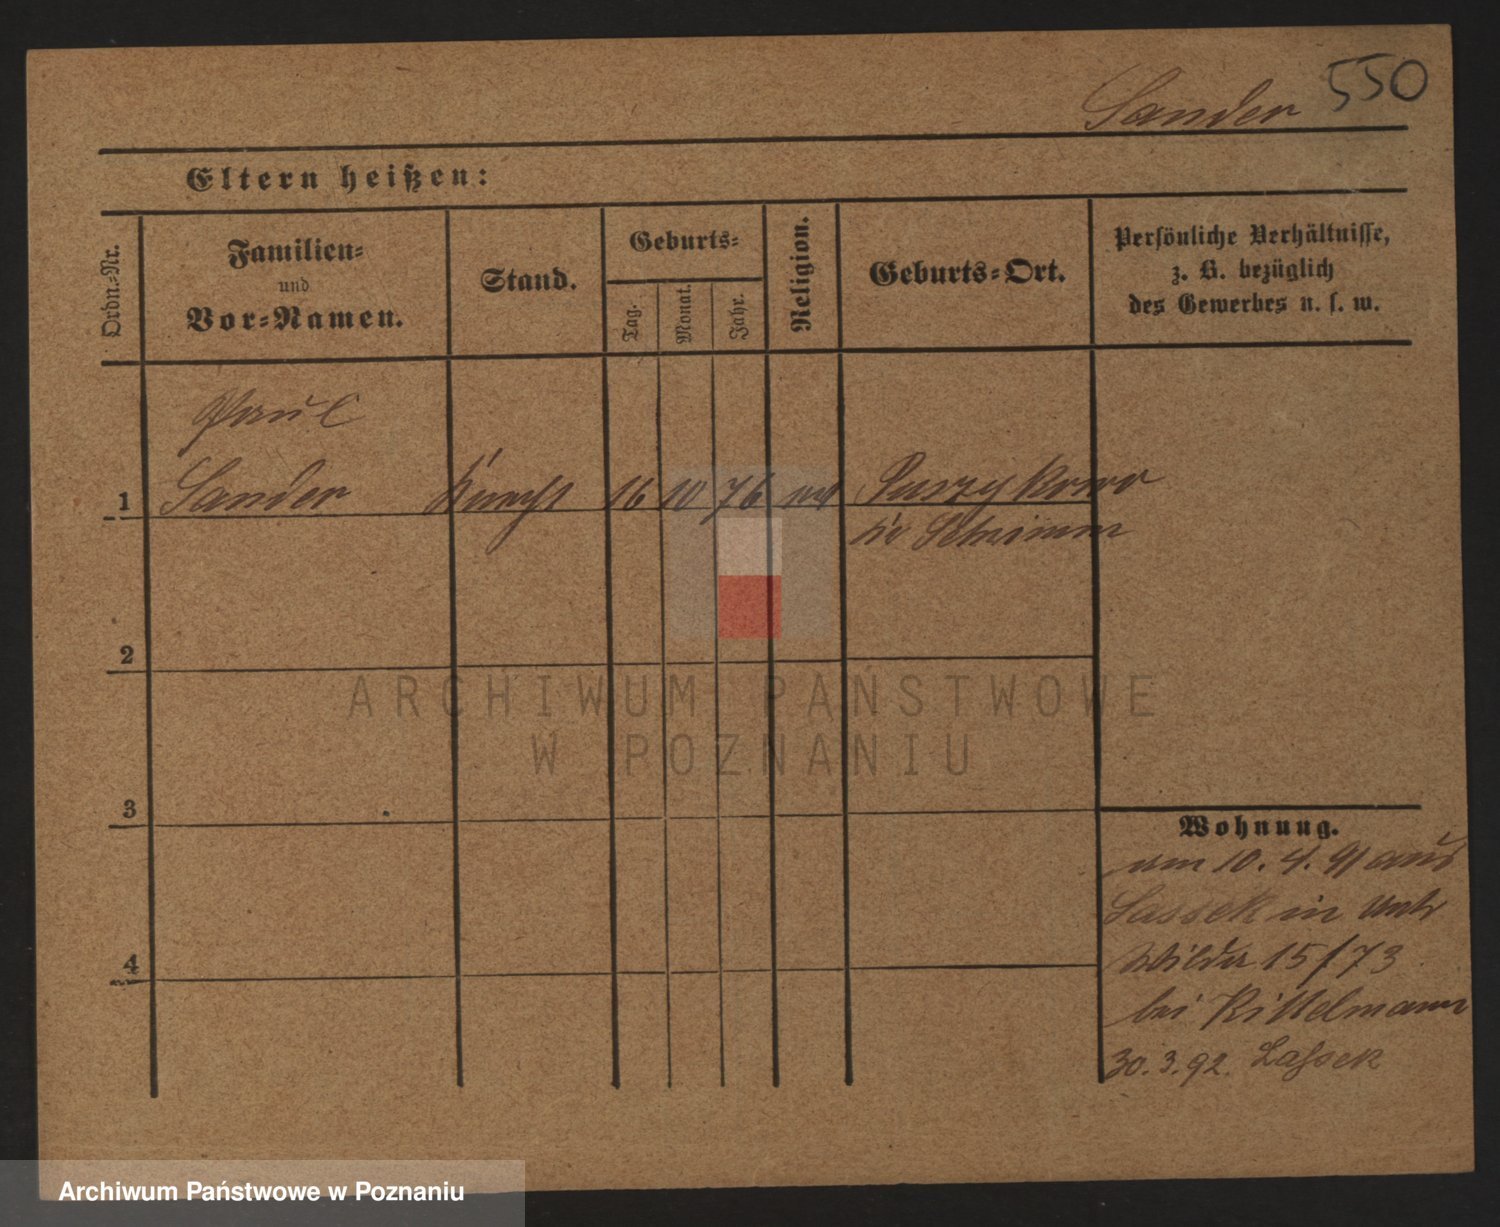 Sander 550
Eltern heißen:
Ordn.-Nr.
Familien-
und
Vor-Namen.
Stand.
Geburts-
Tag.
Monat.
Jahr.
Religion.
Geburts-Ort.
Persönliche Verhältnisse,
z. B. bezüglich
des Gewerbes u. s. w.
Paul
1 Sander Knecht 16 10 76 Puszykowo
Schrimm
2
3
4
Wohnung.
am 10. 4. 91 aus
Lassek in Unt
Wilda 15/73
bei Rittelmann
30. 3. 92. Lassek
ARCHIWUM PAŃSTWOWE
W POZNANIU
Archiwum Państwowe w Poznaniu